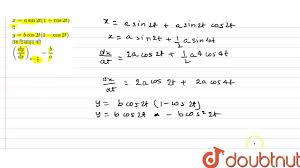 x = a sin 2t (1 + cos 2t)
y = b cos 2t (1 - cos 2t)
x = a sin 2t + a sin 2t cos 2t
x = a sin 2t + 1/2 a sin 4t
dx/dt = 2a cos 2t + 1/2 a 4 cos 4t
dx/dt = 2a cos 2t + 2a cos 4t
y = b cos 2t (1 - cos 2t)
y = b cos 2t - b cos² 2t
doubtnut